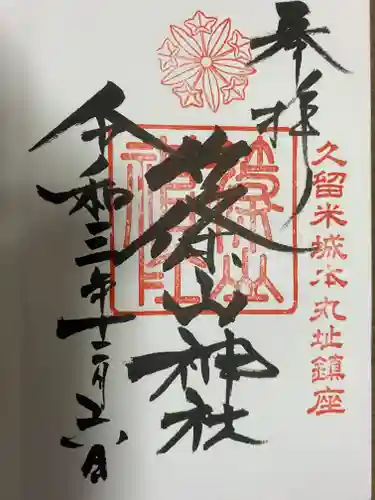 奉拝
久留米城本丸址鎮座
篠山神社
令和三年十二月二六日